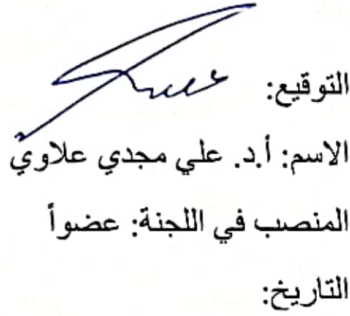 التوقيع:
الاسم: أ.د. علي مجدي علاوي
المنصب في اللجنة: عضواً
التاريخ: